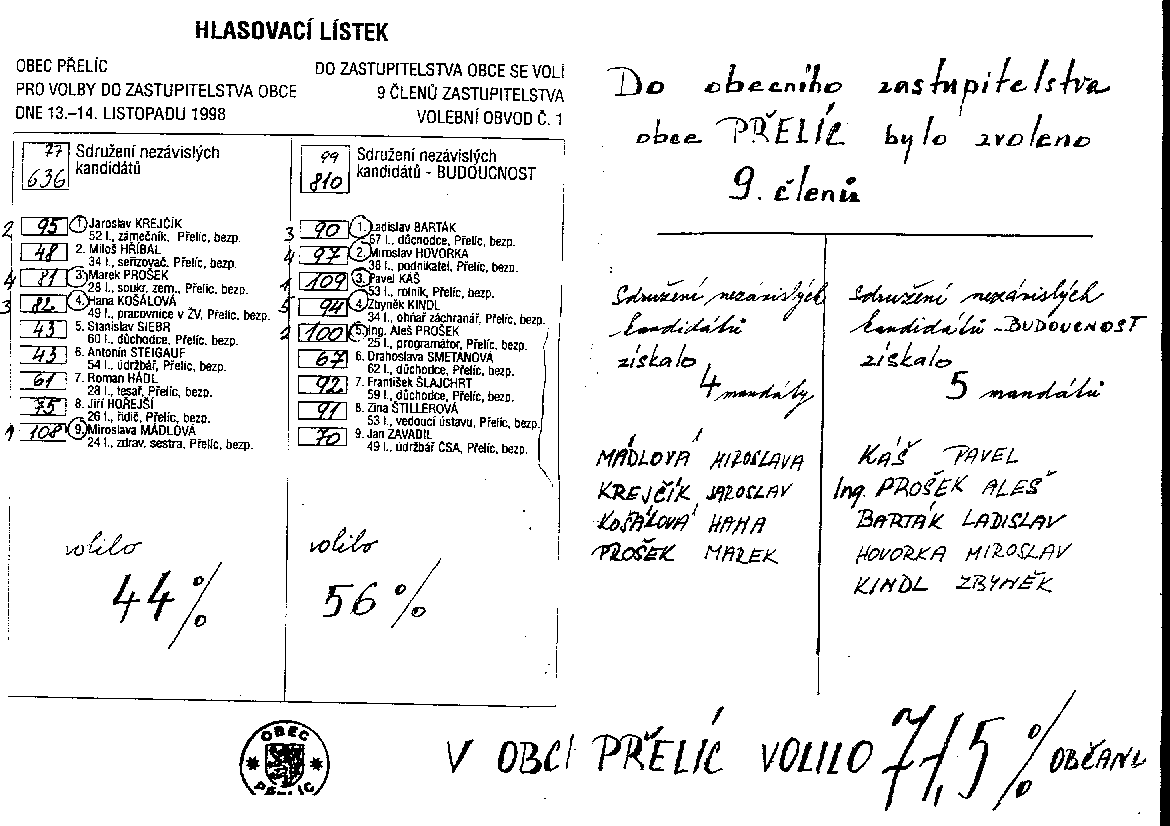 HLASOVACÍ LÍSTEK
OBEC PŘELÍC
PRO VOLBY DO ZASTUPITELSTVA OBCE
DNE 13.-14. LISTOPADU 1998
DO ZASTUPITELSTVA OBCE SE VOLÍ
9 ČLENŮ ZASTUPITELSTVA
VOLEBNÍ OBVOD Č. 1
77 Sdružení nezávislých
636 kandidátů
2 95 1. Jaroslav KREJČÍK
52 l., zámečník, Přelíc, bezp.
48 2. Miloš HŘÍBAL
34 l., seřizovač, Přelíc, bezp.
4 81 3. Marek PROŠEK
28 l., soukr. zem., Přelíc, bezp.
3 82 4. Hana KOŠÁLOVÁ
49 l., pracovnice v ŽV, Přelíc, bezp.
43 5. Stanislav SIEBR
60 l., důchodce, Přelíc, bezp.
43 6. Antonín STEIGAUF
54 l., údržbář, Přelíc, bezp.
61 7. Roman HÁDL
28 l., tesař, Přelíc, bezp.
75 8. Jiří HOŘEJŠÍ
26 l., řidič, Přelíc, bezp.
1 108 9. Miroslava MÁDLOVÁ
24 l., zdrav. sestra, Přelíc, bezp.
volilo
44%
99 Sdružení nezávislých
810 kandidátů - BUDOUCNOST
3 90 1. Ladislav BARTÁK
67 l., důchodce, Přelíc, bezp.
4 97 2. Miroslav HOVORKA
38 l., podnikatel, Přelíc, bezp.
1 109 3. Pavel KÁŠ
53 l., rolník, Přelíc, bezp.
5 94 4. Zbyněk KINDL
34 l., obňař záchranář, Přelíc, bezp.
2 100 5. Ing. Aleš PROŠEK
25 l., programátor, Přelíc, bezp.
67 6. Drahoslava SMETANOVÁ
62 l., důchodce, Přelíc, bezp.
92 7. František ŠLAJCHRT
59 l., důchodce, Přelíc, bezp.
91 8. Zina ŠTILLEROVÁ
53 l., vedoucí ústavu, Přelíc, bezp.
70 9. Jan ZAVADIL
49 l., údržbář ČSA, Přelíc, bezp.
volilo
56%
OBEC
PŘELÍC
Do obecního zastupitelstva
obce PŘELÍC bylo zvoleno
9. členů
Sdružení nezávislých
kandidátů
získalo
4 mandáty
MÁDLOVÁ MIROSLAVA
KREJČÍK JAROSLAV
KOŠÁLOVÁ HANA
PROŠEK MAREK
Sdružení nezávislých
kandidátů - BUDOUCNOST
získalo
5 mandátů
KÁŠ PAVEL
Ing. PROŠEK ALEŠ
BARTÁK LADISLAV
HOVORKA MIROSLAV
KINDL ZBYNĚK
V OBCI PŘELÍC VOLILO 71,5% OBČANŮ